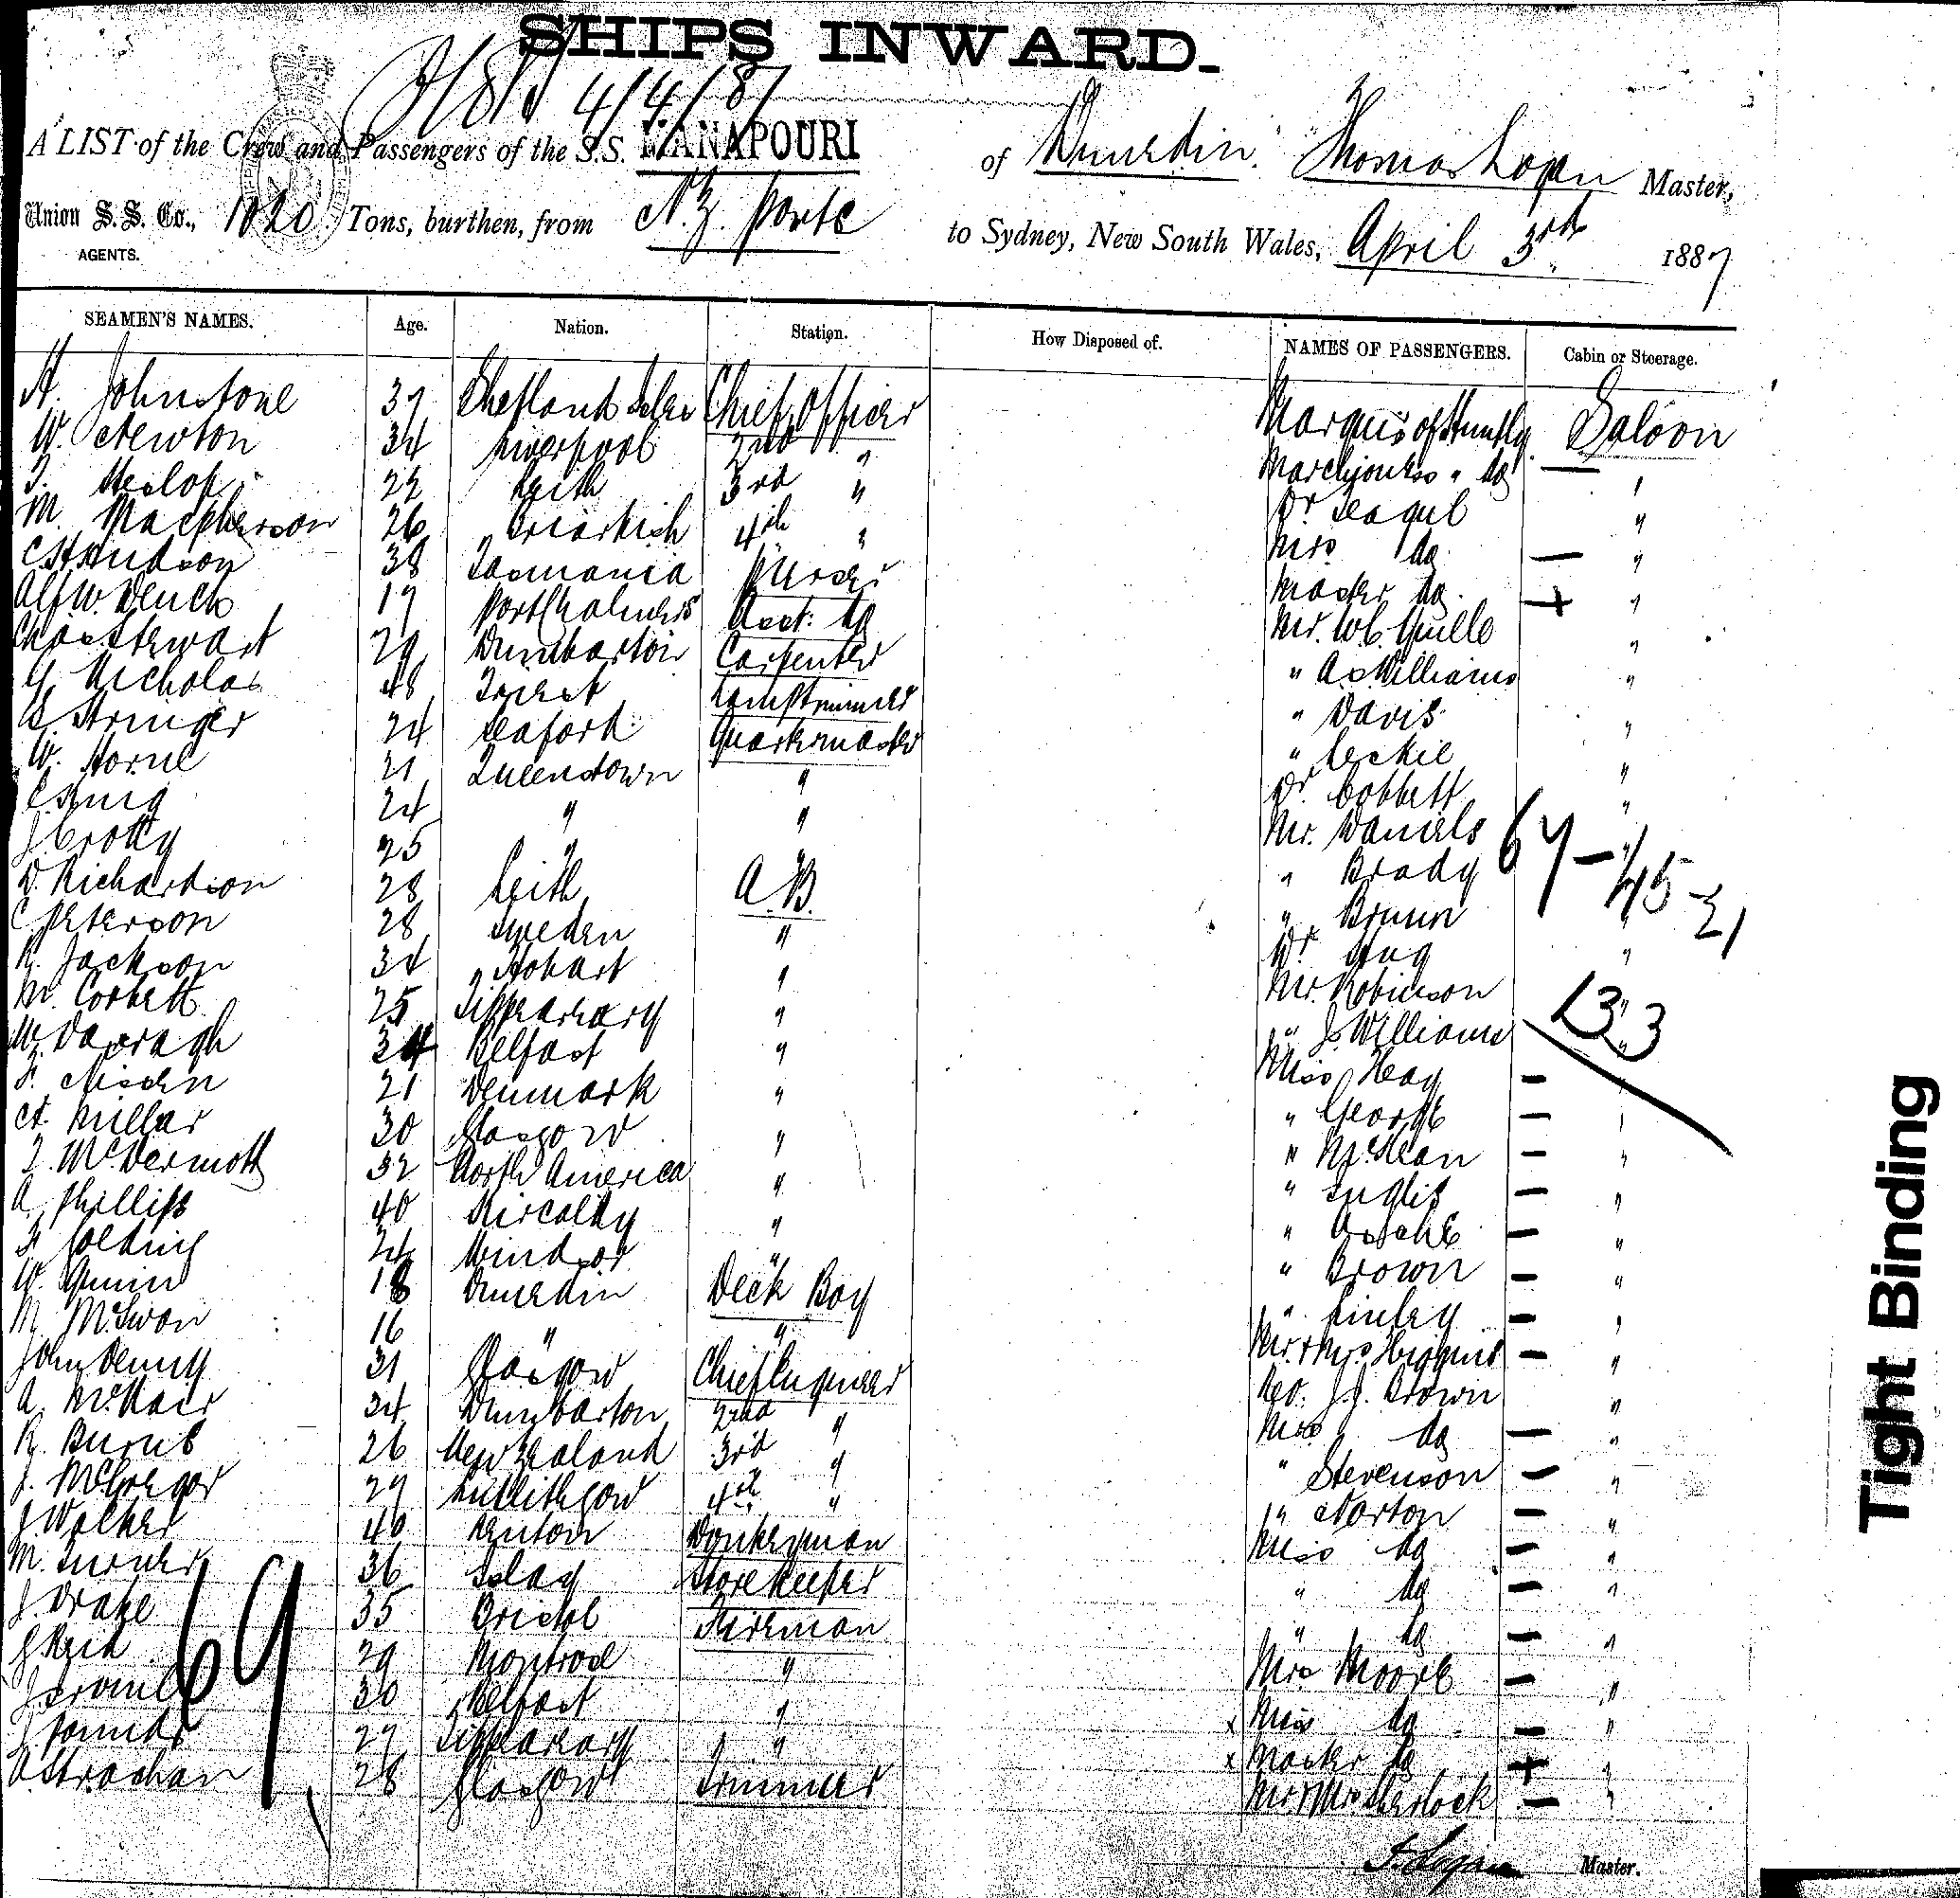 SHIPS INWARD.
4/4/87
A LIST of the Crew and Passengers of the S.S. MANAPOURI of Dunedin, Thomas Logan Master,
Union S.S. Co., 1020 Tons, burthen, from N.Z. Ports to Sydney, New South Wales, April 3rd 1887
AGENTS.
SEAMEN'S NAMES. Age. Nation. Station. How Disposed of. NAMES OF PASSENGERS. Cabin or Steerage.
A. Johnstone 37 Shetland Isles Chief Officer Marquis of Huntly Saloon
W. Newton 34 Liverpool 2nd " Marchioness " do "
T. Heslop 22 Leith 3rd " Dr Seagul "
M. Macpherson 26 4th " Mrs do — "
C Hudson 38 Tasmania Purser Master do + "
Alf W. 17 Port Chalmers Asst. do Mr. W.C. "
Chas Stewart 29 Dumbarton Carpenter " A Williams "
G. Nicholas 48 Triest Lamptrimmer " Davis "
S. Stringer 24 Seaford Quartermaster " Leckie "
W. Horne 21 Queenstown " Dr Cobbett "
24 " " Mr. Daniels "
J. Crotty 25 " " " Brady "
67 — 45 - 21
D. Richardson 28 Leith A.B. " Brunn "
C. Peterson 28 Sweden " Dr "
R. Jackson 34 Hobart " Mr. Robinson "
133
M. Corbett 25 Tipperary " " J. Williams "
W. Darragh 34 Belfast " Miss Hay — "
F. Nissen 21 Denmark " " George — "
A. Millar 30 Glasgow " " McKean — "
T. McDermott 32 North America " " Inglis — "
A. Phillips 40 Kircaldy " " — "
F. Golding 24 Windsor " " Brown — "
W. Quinn 18 Dunedin Deck Boy " Finley — "
M. McSwan 16 " " Mr. & Mrs Higgins — "
John Denny 31 Glasgow Chief Engineer Rev. J.J. Brown "
A. McNair 34 Dumbarton 2nd " Mrs do — "
R. Burns 26 New Zealand 3rd " " Stevenson — "
J. McGregor 29 Linlithgow 4th " " Norton — "
J. Walker 40 Renton Donkeyman Miss do — "
M. Turner 36 Islay Storekeeper " do — "
J. Drake 35 Bristol Fireman " do — "
J Reid 29 Montrose " Mrs Moore — "
30 Belfast " x Miss do — "
J. Pounds 27 Tipperary " x Master do + "
A. Strachan 28 Glasgow Trimmer Mr & Mrs Sherlock — "
69
T. Logan Master.
Tight Binding